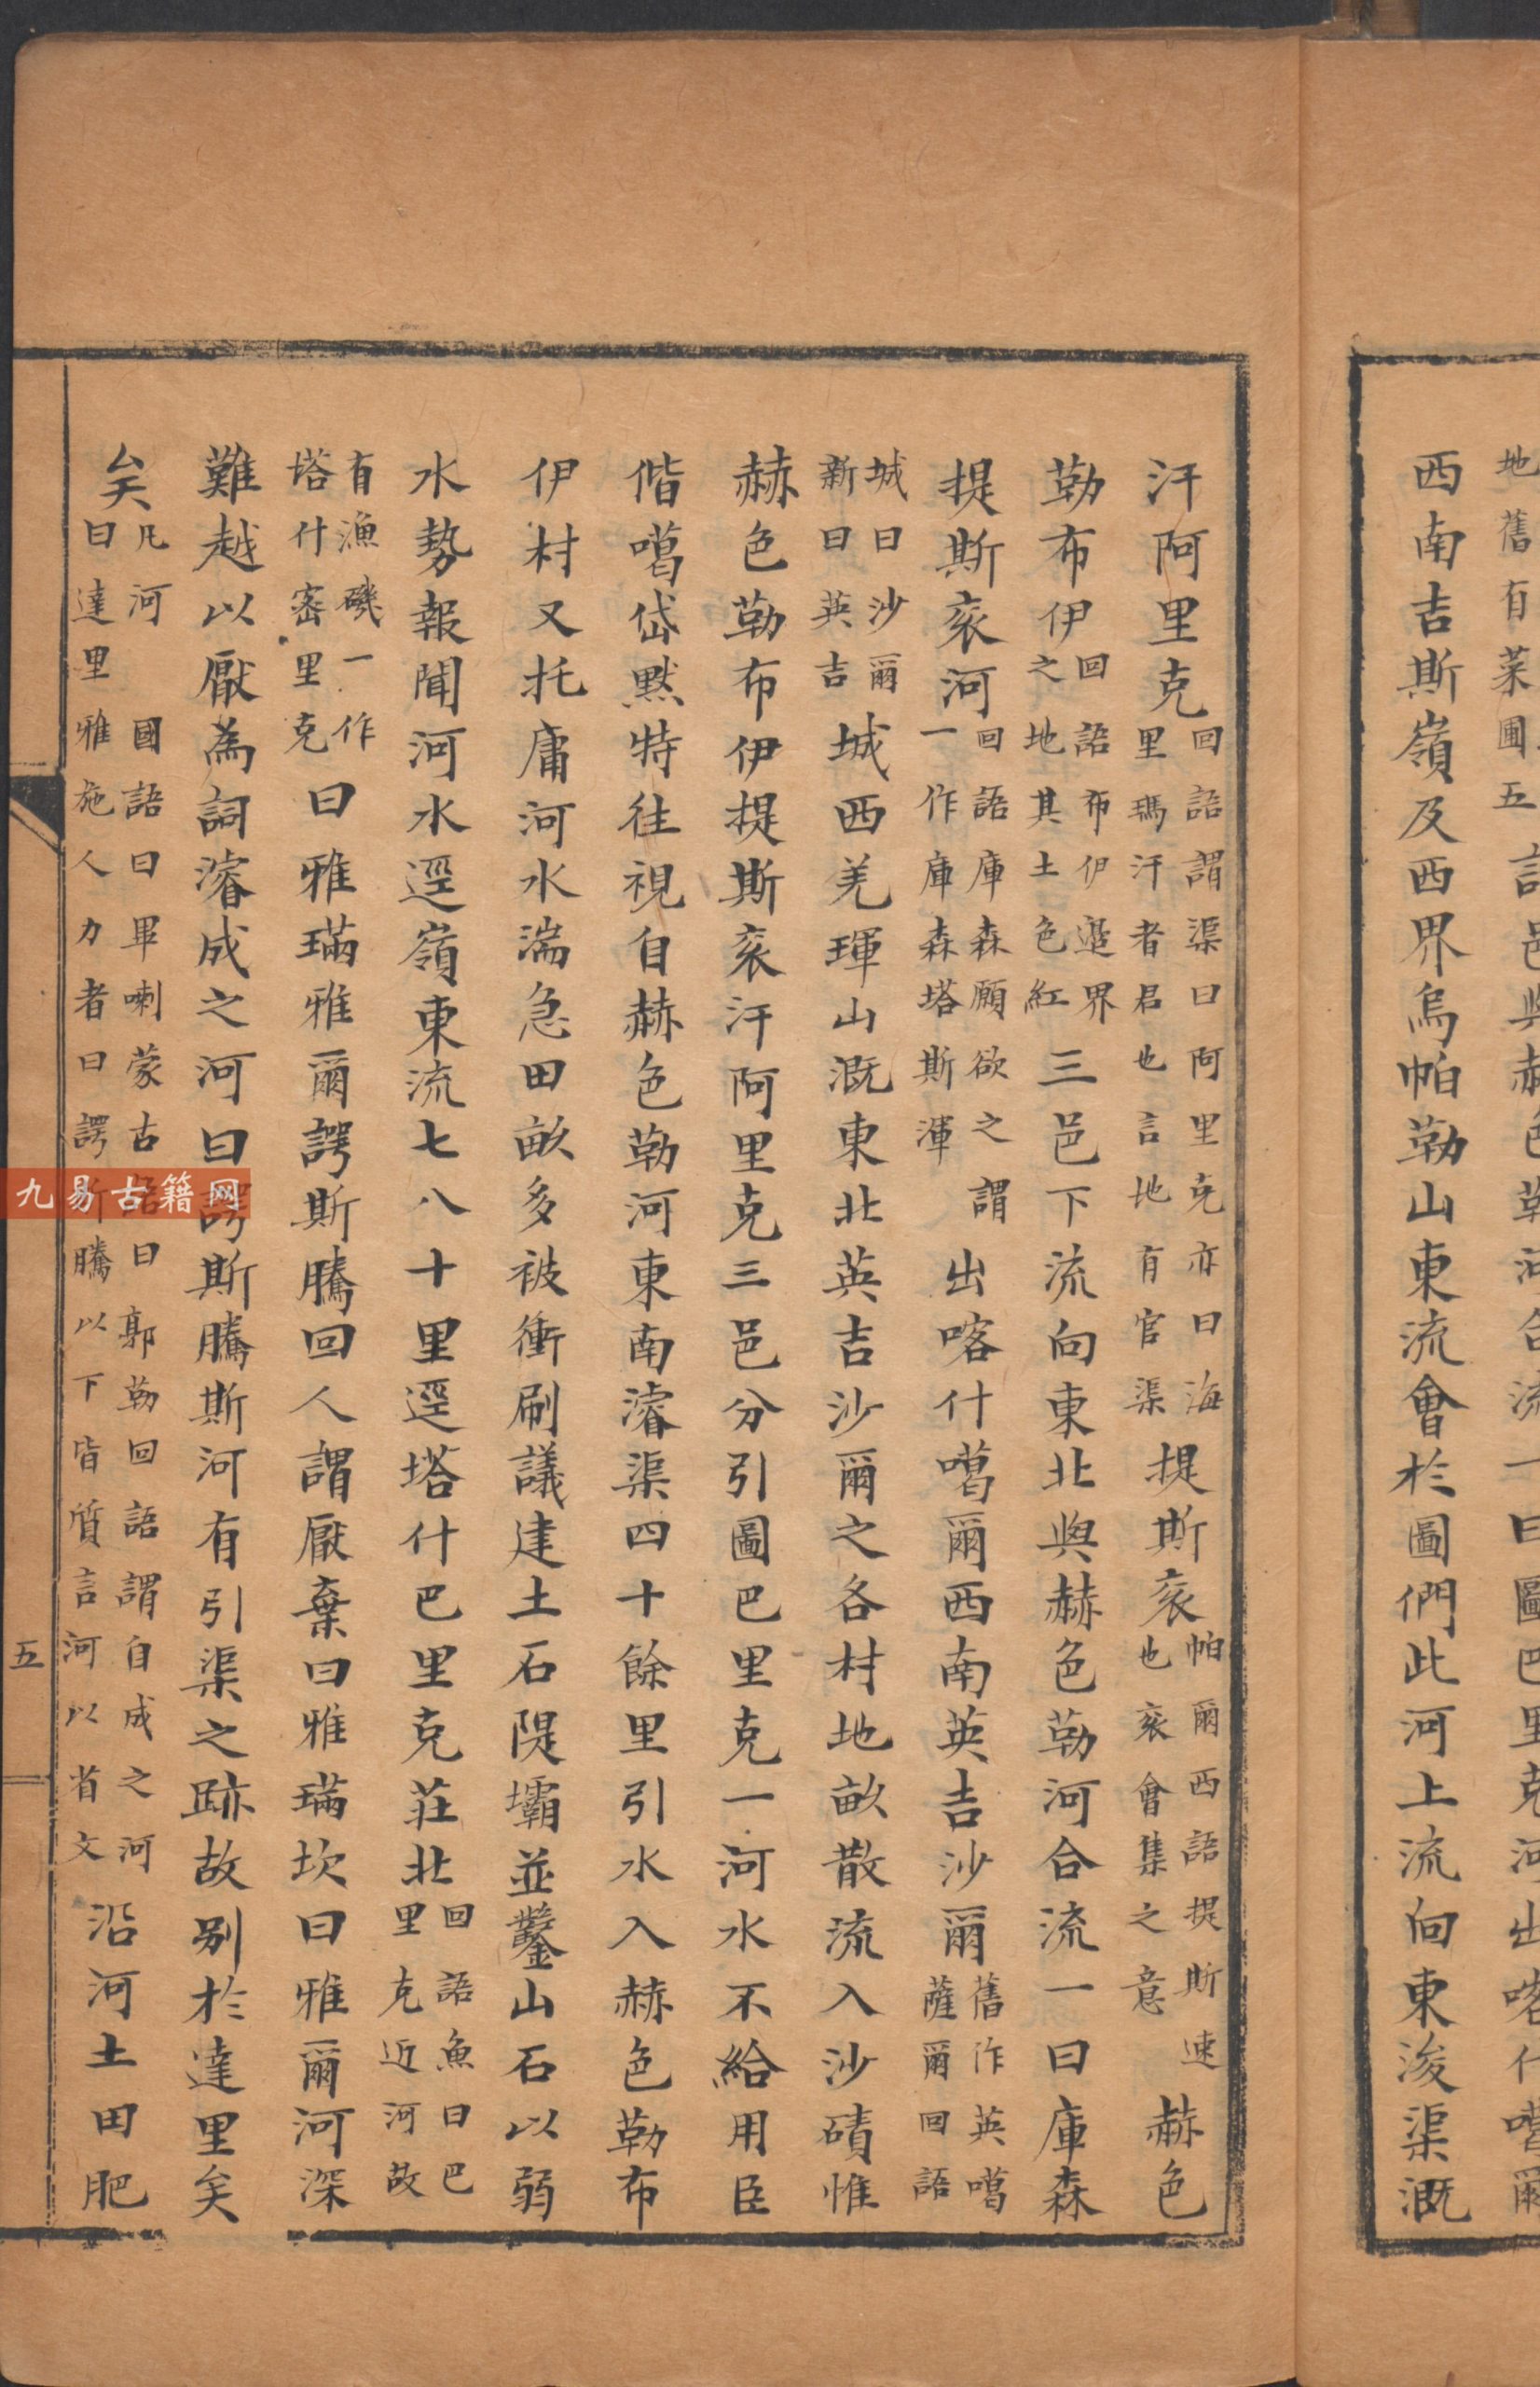 地舊有菜圃五
邑與赫色勒河合流一曰圖巴里克河出喀什噶爾
西南吉斯嶺及西界烏帕勒山東流會於圖們此河上流向東浚渠溉
汗阿里克回語謂渠曰阿里克亦曰海里瑪汗者君也言地有官渠提斯衮帕爾西語提斯速也衮會集之意赫色
勒布伊回語布伊邊界之地其土色紅三邑下流向東北與赫色勒河合流一曰庫森
提斯衮河回語庫森願欲之謂一作庫森塔斯渾出喀什噶爾西南英吉沙爾舊作英噶薩爾回語
城曰沙爾新曰英吉城西羌琿山溉東北英吉沙爾之各村地畝散流入沙磧惟
赫色勒布伊提斯衮汗阿里克三邑分引圖巴里克一河水不給用臣
偕噶岱默特往視自赫色勒河東南濬渠四十餘里引水入赫色勒布
伊村又托庸河水湍急田畝多被衝刷議建土石隄壩並鑿山石以弱
水勢報聞河水逕嶺東流七八十里逕塔什巴里克莊北回語魚曰巴里克近河故
有漁磯一作塔什密里克曰雅璊雅爾諤斯騰回人謂厭棄曰雅璊坎曰雅爾河深
難越以厭為詞濬成之河曰諤斯騰斯河有引渠之跡故別於達里矣
矣凡河國語曰畢喇蒙古語曰郭勒回語謂自成之河曰達里雅施人力者曰諤斯騰以下皆質言河以省文沿河土田肥
五
九易古籍网